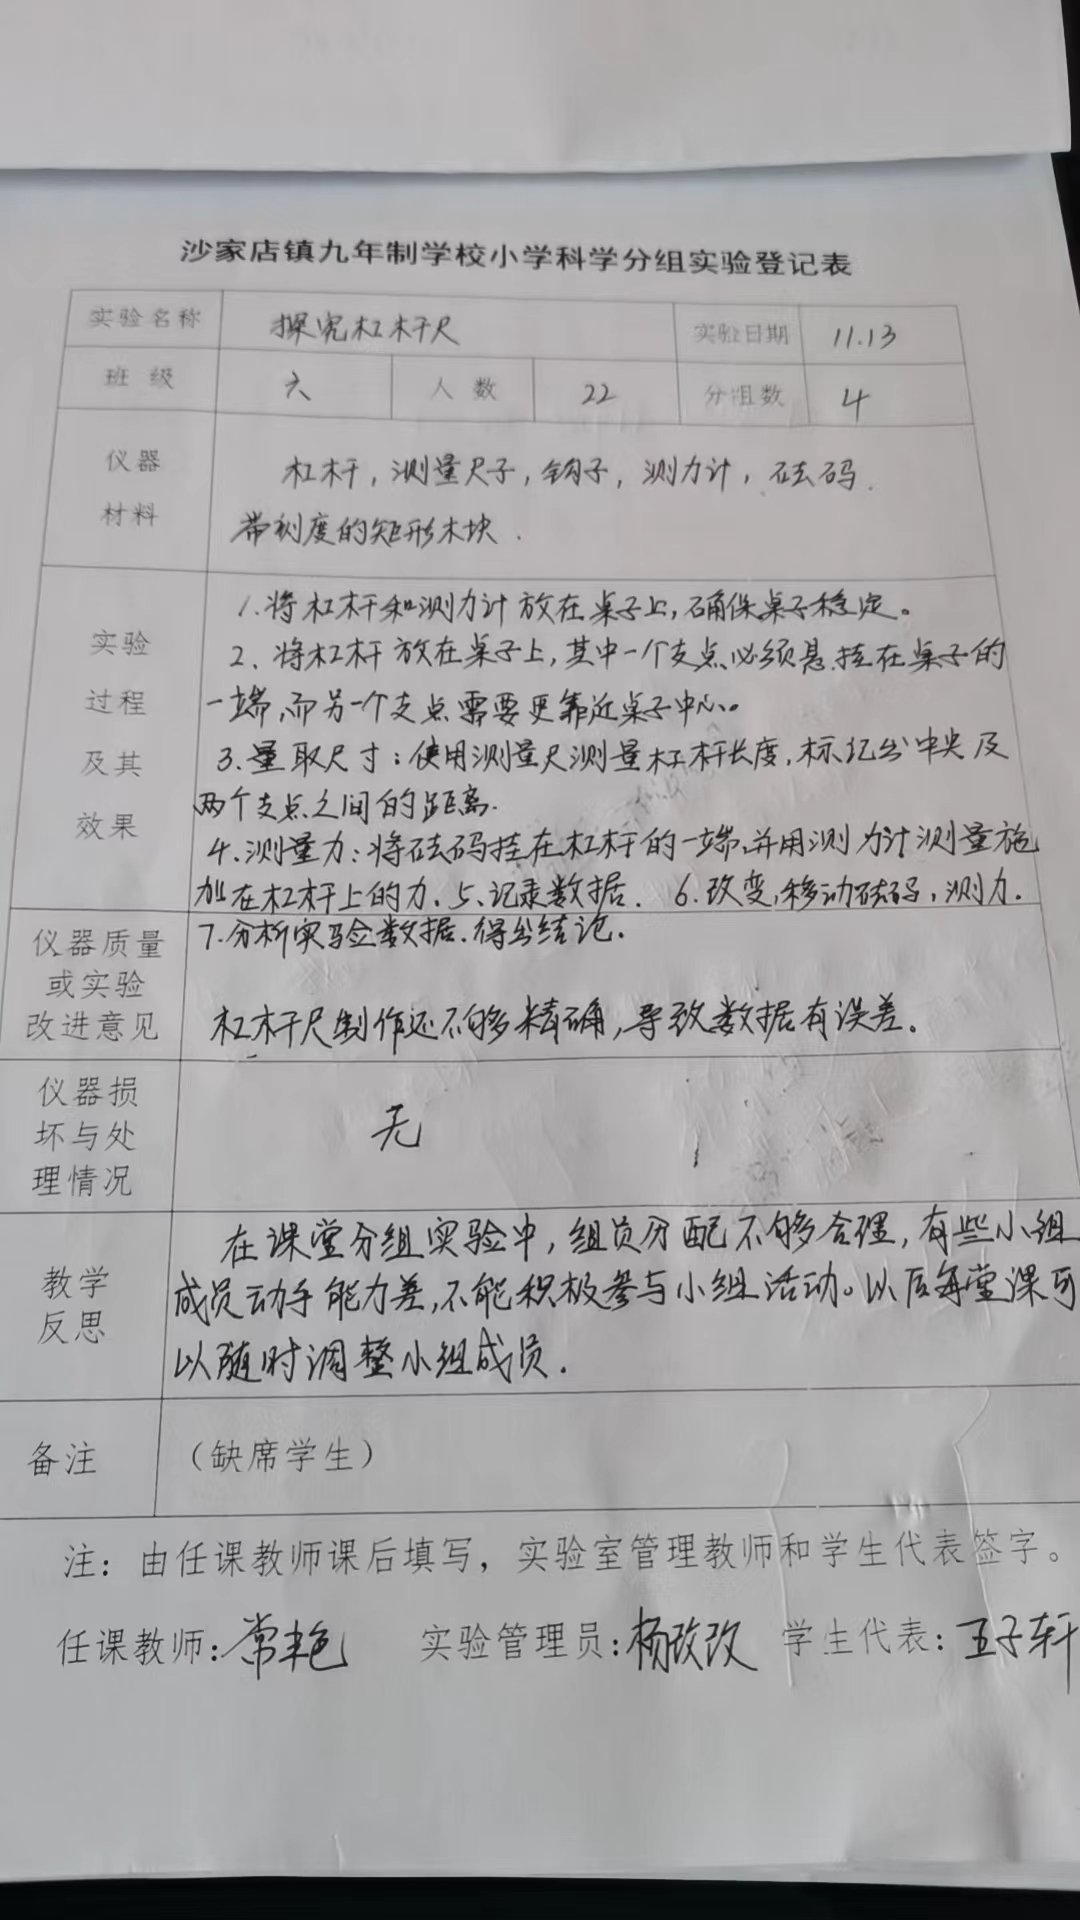 沙家店镇九年制学校小学科学分组实验登记表
实验名称 探究杠杆尺 实验日期 11.13
班级 六 人数 22 分组数 4
仪器材料 杠杆，测量尺子，钩子，测力计，砝码．
带刻度的矩形木块．
实验过程及其效果
1.将杠杆和测力计放在桌子上，确保桌子稳定。
2、将杠杆放在桌子上，其中一个支点必须悬挂在桌子的
一端，而另一个支点需要更靠近桌子中心。
3.量取尺寸：使用测量尺测量杠杆长度，标记出中央及
两个支点之间的距离.
4.测量力：将砝码挂在杠杆的一端，并用测力计测量施
加在杠杆上的力．5、记录数据．6.改变，移动砝码，测力．
7.分析实验数据．得出结论．
仪器质量
或实验
改进意见
杠杆尺制作还不够精确，导致数据有误差．
仪器损
坏与处
理情况
无
教学
反思
在课堂分组实验中，组员分配不够合理，有些小组
成员动手能力差，不能积极参与小组活动。以后每堂课可
以随时调整小组成员．
备注 （缺席学生）
注：由任课教师课后填写，实验室管理教师和学生代表签字。
任课教师：常艳 实验管理员：杨改改 学生代表：王子轩